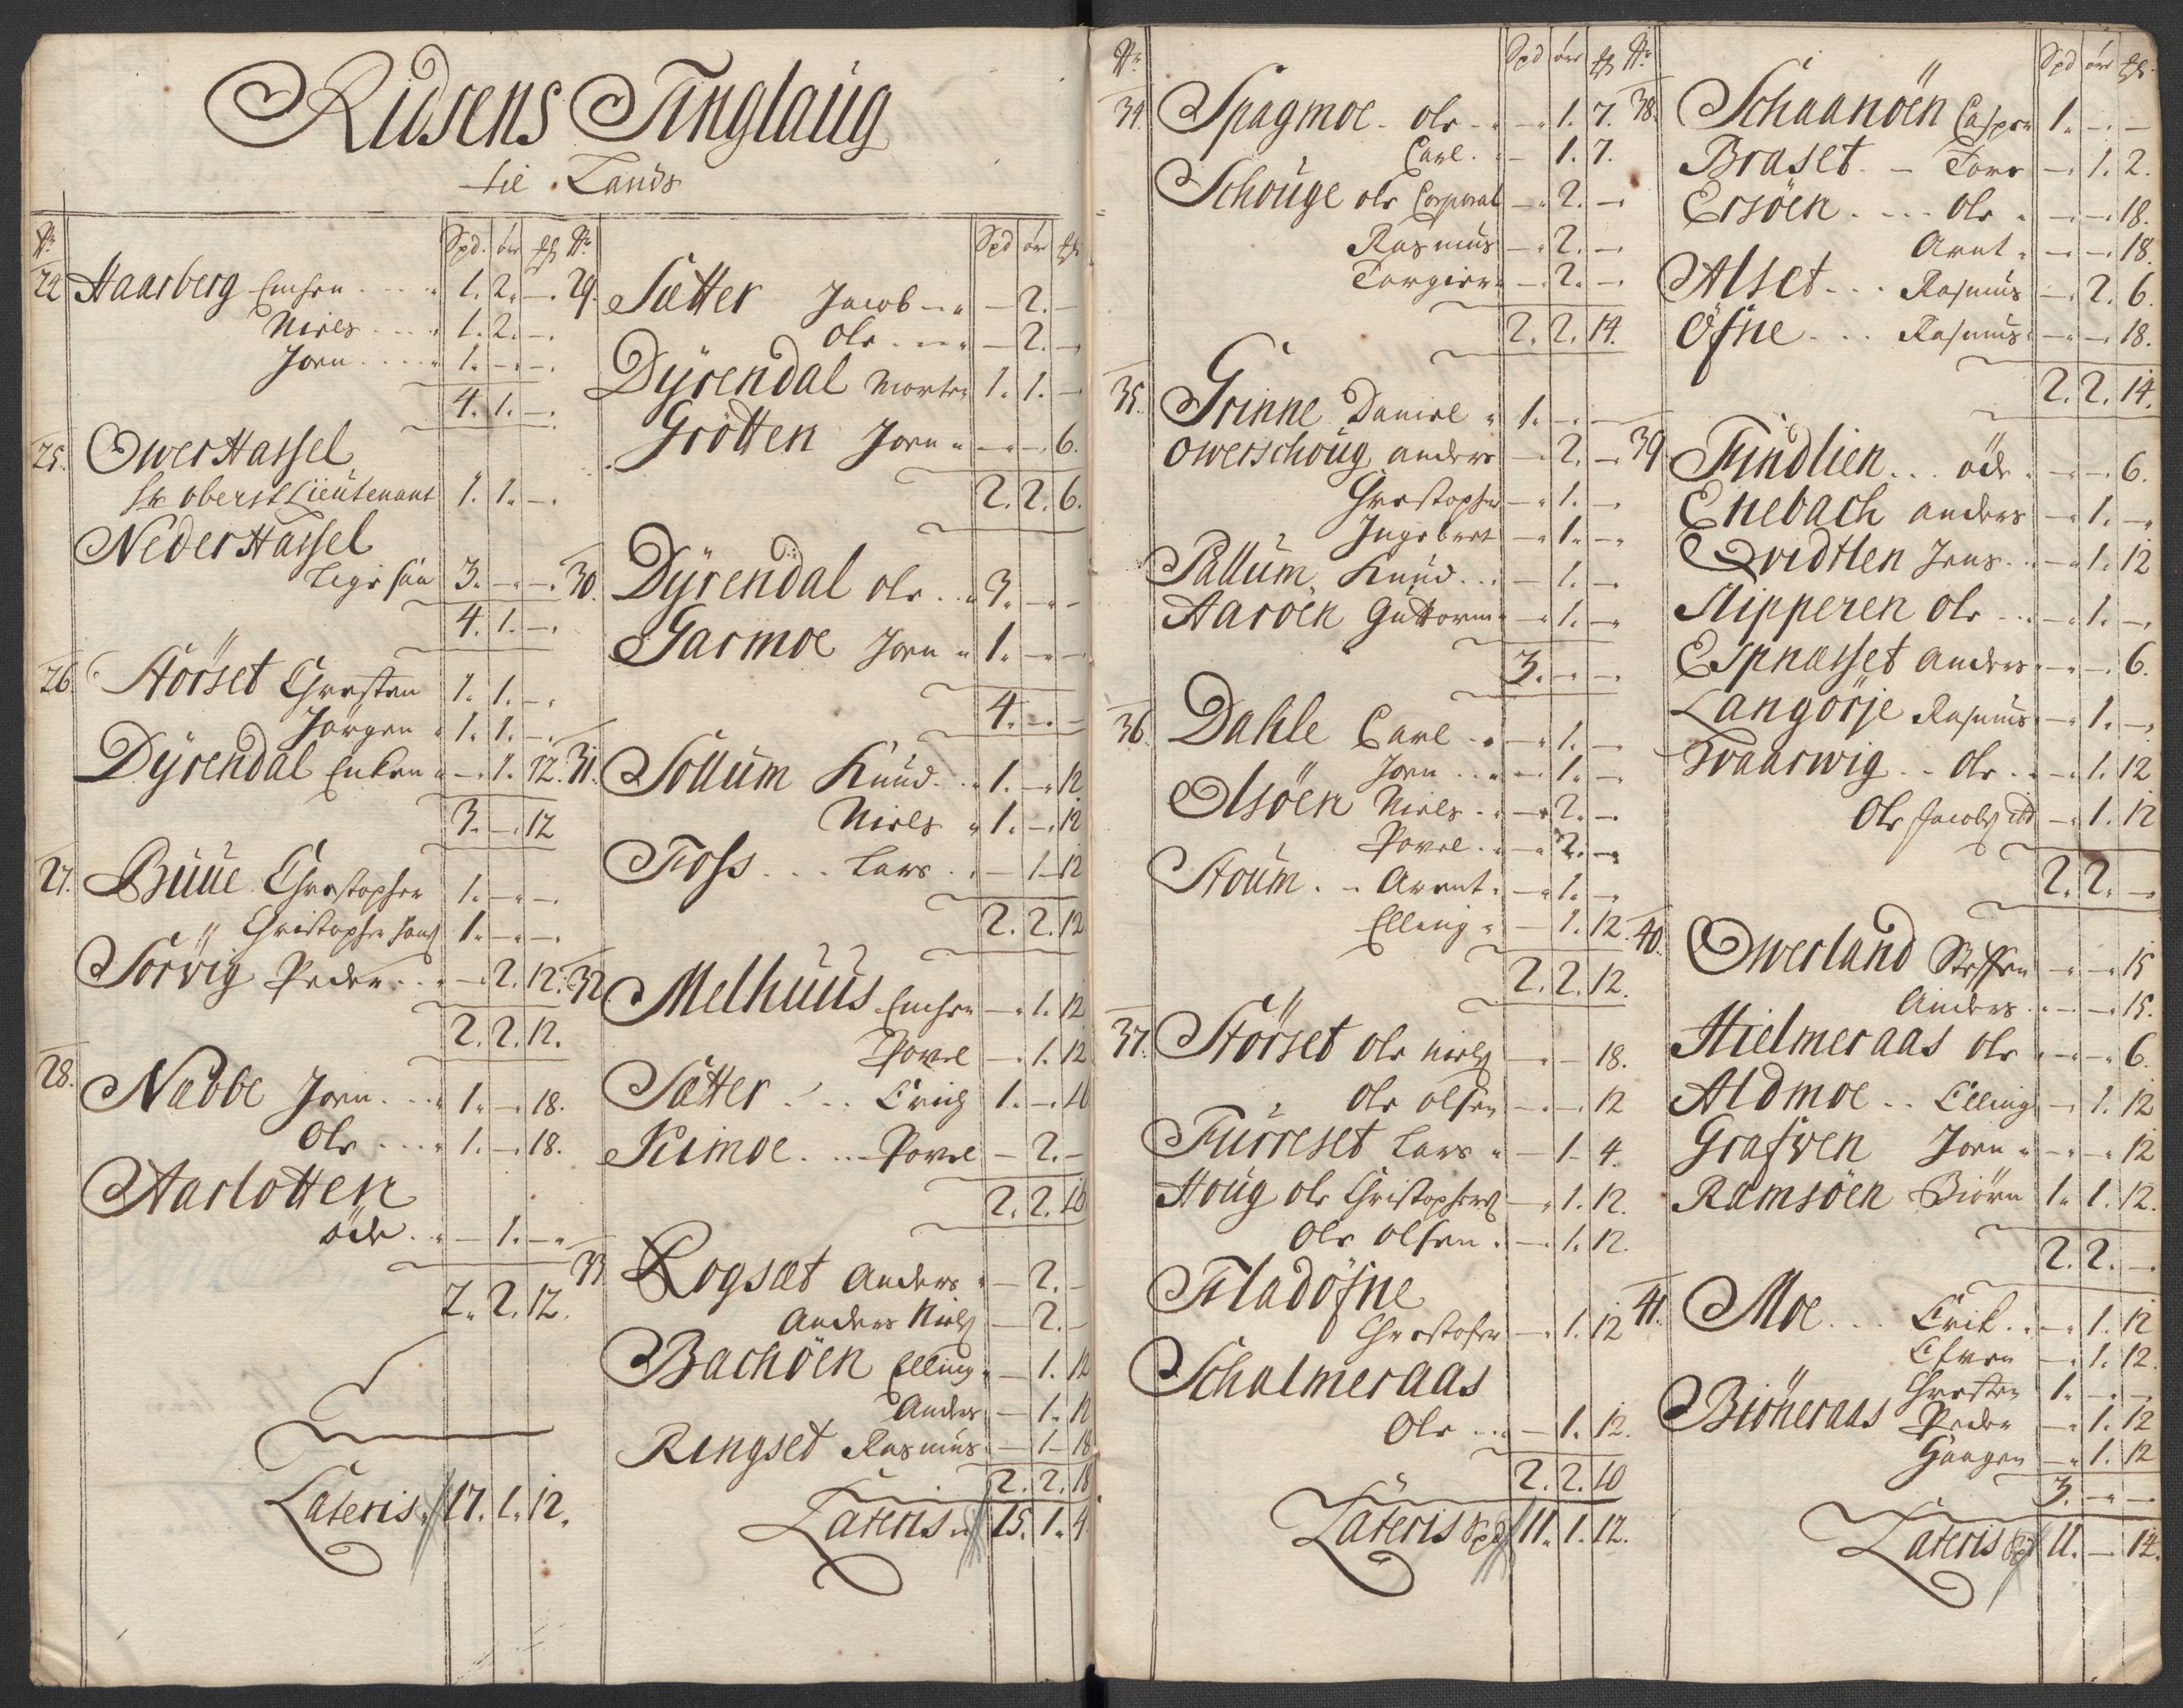 Riisens Tinglaug
til Lands
No Spd. ører ß
24 Haarberg Einchen 1. 2. -
Niels 1. 2. -
Joen 1. - -
4. 1. -
25. Ower Hassel
Hr Oberst Lieutenant 1. 1. -
Neder Hassel
Legs søn 3. - -
4. 1. -
26. Störset Christen 1. 1. -
Jørgen 1. 1. -
Dÿrendal Encken - 1. 12
3. - 12
27. Buüe Christopher 1. - -
Christopher Hans 1. - -
Sorvig Peder - 2. 12
2. 2. 12.
28. Nabbe Joen 1. - 18.
Ole 1. - 18.
Aarlotten
øde - 1. -
2. 2. 12.
Lateris 17. 1. 12.
No Spd ører ß
29. Sætter Jacob - 2. -
Ole - 2. -
Dÿrendal Morten 1. 1. -
Grötten Joen - - 6.
2. 2. 6.
30. Dÿrendal Ole 3. - -
Garmoe Joen 1. - -
4. - -
31. Sollum Knud 1. - 12
Niels 1. - 12
Foss Lars - 1 - 12
2. 2. 12
32 Melhuus Einchen - 1. 12
Povel - 1. 12
Sætter Erich 1. - 10
Kimoe Povel - 2. -
2. 2. 10
33 Rogsæt Anders - 2. -
Anders Niels - 2. -
Bachöen Elling - 1. 12
Anders - 1. 12
Ringset Rasmus - 1 - 18
2. 2. 18
Lateris 15. 1. 4
No Spd ører ß
34. Spagmoe Ole - 1. 7.
Carl - 1. 7.
Schouge Ole Corporal - 2. -
Rasmus - 2. -
Torgier - 2. -
2. 2. 14.
35. Grinne Daniel 1. - -
Owerschoug Anders - 2. -
Christopher - 1. -
Ingebret - 1. -
Pallum Knud - 1. -
Aaröen Guttorm - 1. -
3. - -
36. Dahle Carl - 1. -
Joen - 1. -
Olsöen Niels - 2. -
Povel - 2. -
Stoum Arent - 1. -
Elling - 1. 12.
2. 2. 12.
37. Störset Ole Niels - - 18.
Ole Olsen - - 12
Furreset Lars - 1 - 4.
Houg Ole Christophers - 1. 12.
Ole Olsen - 1. 12.
Fladöfne
Christofer - 1. 12
Schalmeraas
Ole - 1. 12.
2. 2. 10
Lateris Spd 11. 1. 12.
No Spd ører ß
38. Schaanöen Casper 1. - -
Braset Tore - 1. 2.
Ersöen Ole - - 18.
Arent - - 18.
Alset Rasmus - 2. 6.
Öfne Rasmus - - 18.
2. 2. 14.
39 Findlien øde - - 6.
Enebach Anders - 1. -
Qvidtlen Jens - 1. 12
Slipperen Ole - 1. -
Espnæsset Anders - - 6.
Langörje Rasmus - 1. -
Svaarwig Ole - 1. 12
Ole Jacobs - 1. 12
2. 2. -
40. Owerland Steffen - - 15
Anders - - 15.
Hielmeraas Ole - - 6.
Aldmoe Elling - 1. 12
Grafven Joen - - 12
Ramsöen Biörn 1. 1. 12.
2. 2. -
41. Moe Erik - 1. 12
Esten - 1. 12.
Christen 1. - -
Biöneraas Peder - 1. 12
Haagen - 1. 12
3. - -
Lateris Spd 11. - 14.